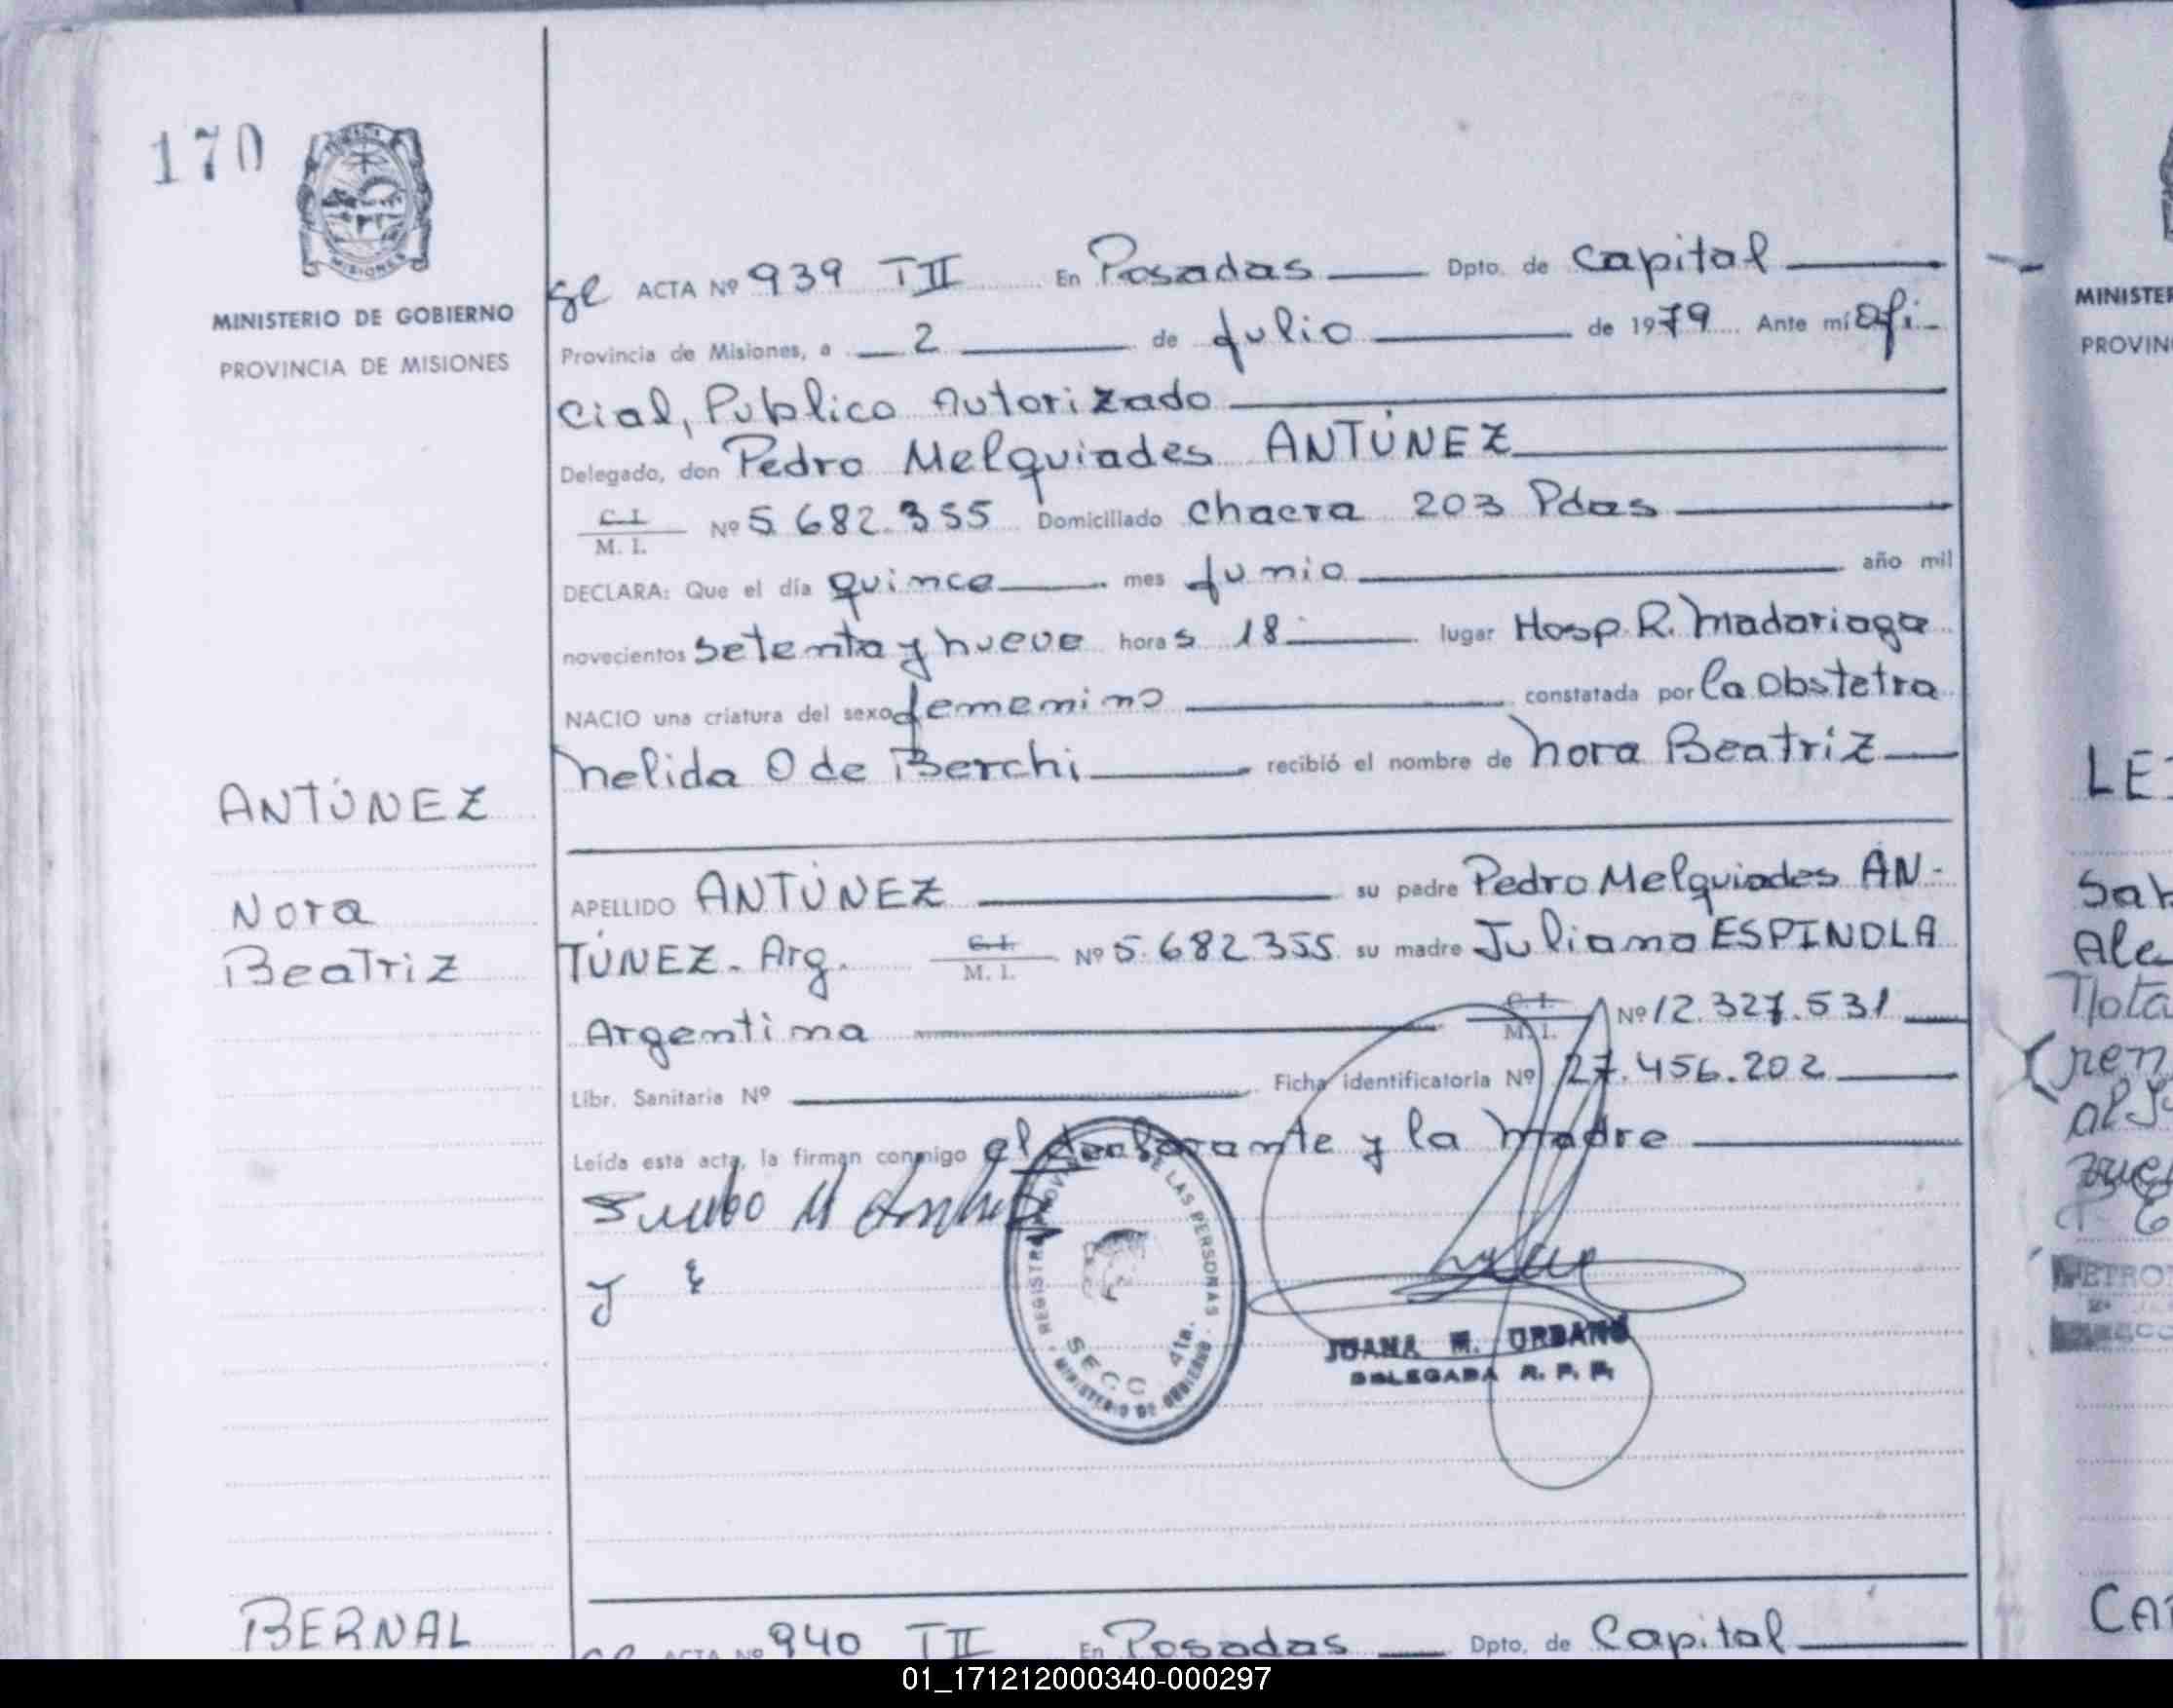 170
MISIONES
MINISTERIO DE GOBIERNO
PROVINCIA DE MISIONES
ANTÚNEZ
Nora
Beatriz
BERNAL
ACTA Nº 939 TII En Posadas Dpto. de Capital
Provincia de Misiones, a 2 de Julio de 1979 Ante mí Ofi-
cial, Publico Autorizado
Delegado, don Pedro Melquiades ANTÚNEZ
C.I. M. I. Nº 5.682.355 Domiciliado Chacra 203 Pdas
DECLARA: Que el día quince mes Junio año mil
novecientos setenta y nueve horas 18 lugar Hosp. R. Madariaga
NACIO una criatura del sexo femenino constatada por la Obstetra
Nelida O de Berchi recibió el nombre de Nora Beatriz
APELLIDO ANTÚNEZ su padre Pedro Melquiades AN-
TÚNEZ. Arg. C.I. M. I. Nº 5.682.355 su madre Juliana ESPINDOLA
Argentina C.I. M. I. Nº 12.327.531
Libr. Sanitaria Nº Ficha identificatoria Nº 27.456.202
Leída esta acta, la firman conmigo el declarante y la madre
REGISTRO PROVINCIAL DE LAS PERSONAS
SECC. 4ta.
MINISTERIO DE GOBIERNO
JUANA M. URBANO
DELEGADA R. P. P.
ACTA Nº 940 TII En Posadas Dpto. de Capital
MINISTER
PROVIN
Sab
Ale
Nota
ren
al
01_171212000340-000297